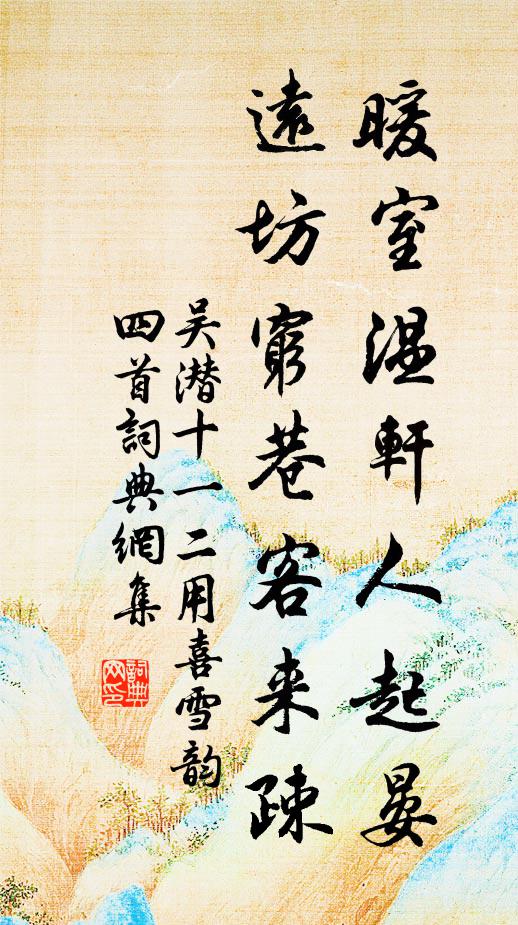 暖室溫軒人起晏
遠坊窮巷客来疎
吴潜十一二用喜雪韵
四首詞典網集
詞典网印